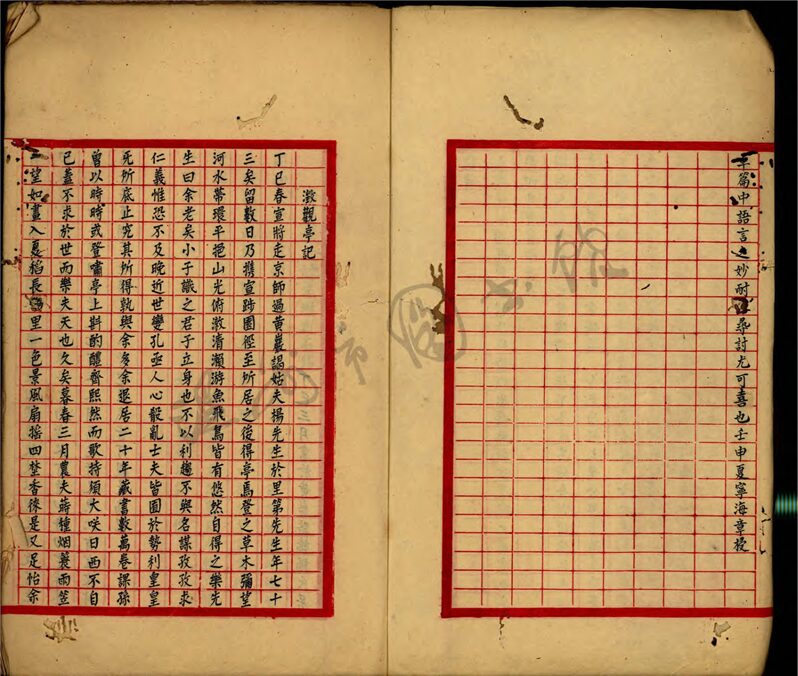 篇中語言之妙耐 尋討尤可喜也壬申夏寧海章梫
澂觀亭記
丁巳春宣將走京師過黃巖謁姑夫楊先生於里第先生年七十
三矣留數日乃攜宣踄園徑至所居之後得亭焉登之草木彌望
河水帶環平挹山光俯澂清瀨游魚飛鳥皆有悠然自得之樂先
生曰余老矣小子識之君子立身也不以利趨不與名謀孜孜求
仁義惟恐不及晚近世變孔亟人心骰亂士夫皆囿於勢利皇皇
死所底止究其所得孰與余多余退居二十年藏書數萬卷課孫
曾以時時或登嘯亭上斟酌醲齊熙然而歌持須大咲日西不自
已蓋不求於世而樂夫天也久矣暮春三月農夫蒔種烟蓑雨笠
望如畫入夏稻長 里一色景風扇搖四埜香徠是又足怡余